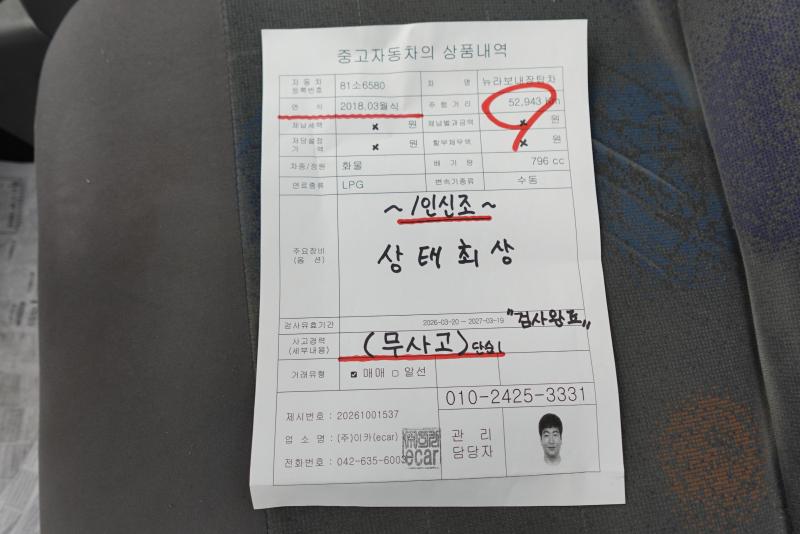 중고자동차의 상품내역
자동차등록번호 81소6580 차 명 뉴라보내장탑차
연 식 2018.03월식 주행거리 52,943 km
체납세액 × 원 체납벌과금액 × 원
저당설정가액 × 원 할부채무액 × 원
차종/정원 화물 배기량 796 cc
연료종류 LPG 변속기종류 수동
주요장비(옵 션)
~1인신조~
상태최상
검사유효기간 2026-03-20 ~ 2027-03-19 "검사완료"
사고경력(세부내용) (무사고) 단순
거래유형 ☑ 매매 □ 알선
010-2425-3331
제시번호 : 20261001537
업 소 명 : (주)이카(ecar)
전화번호 : 042-635-6003
ecar
관 리
담당자